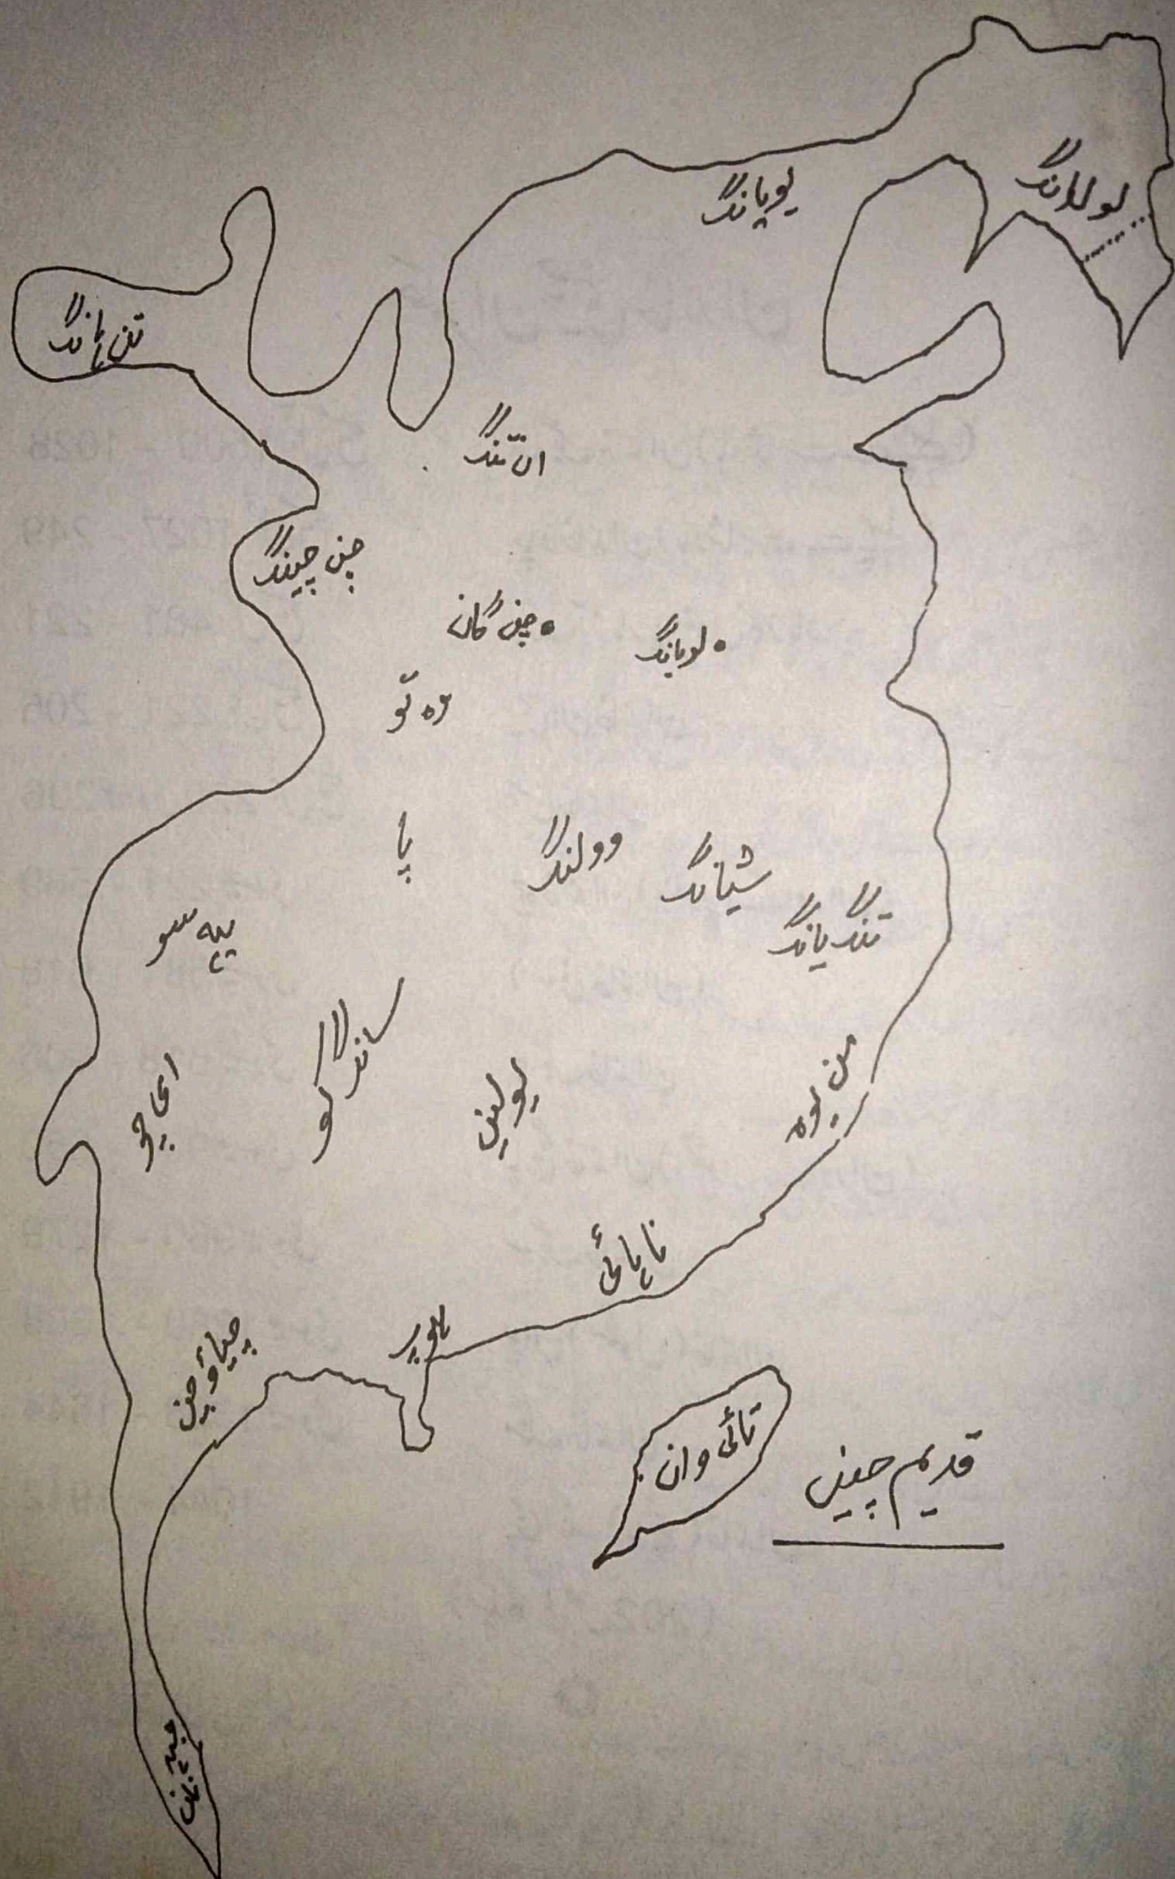 لولانگ
یوپانگ
تن ہانگ
ان تنگ
چن چینگ
چن گان
لویانگ
وہ تو
پا
وولنگ
شیانگ
تنگ یانگ
پیہ سو
سانگ کو
یولین
من یوہ
ای چو
ناہائی
ہوپہ
چیاؤچن
تائی وان
قدیم چین